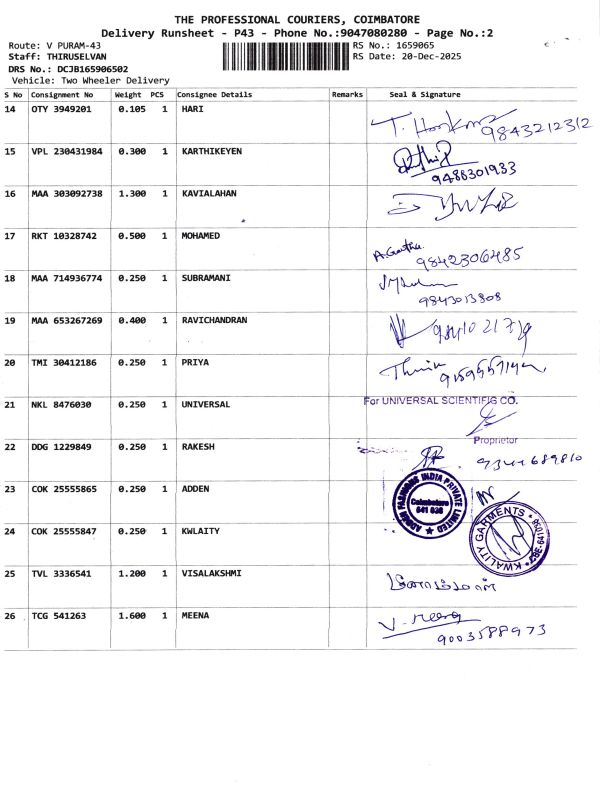 THE PROFESSIONAL COURIERS, COIMBATORE
Delivery Runsheet - P43 - Phone No.:9047080280 - Page No.:2
Route: V PURAM-43 RS No.: 1659065
Staff: THIRUSELVAN RS Date: 20-Dec-2025
DRS No.: DCJB165906502
Vehicle: Two Wheeler Delivery
S No Consignment No Weight PCS Consignee Details Remarks Seal & Signature
14 OTY 3949201 0.105 1 HARI
9843212312
15 VPL 230431984 0.300 1 KARTHIKEYEN
9488301933
16 MAA 303092738 1.300 1 KAVIALAHAN
17 RKT 10328742 0.500 1 MOHAMED
9842306485
18 MAA 714936774 0.250 1 SUBRAMANI
9843013808
19 MAA 653267269 0.400 1 RAVICHANDRAN
20 TMI 30412186 0.250 1 PRIYA
21 NKL 8476030 0.250 1 UNIVERSAL
For UNIVERSAL SCIENTIFIC CO.
Proprietor
22 DDG 1229849 0.250 1 RAKESH
9344689810
23 COK 25555865 0.250 1 ADDEN
ADDEN FASHIONS INDIA PRIVATE LIMITED
Coimbatore
641 038
24 COK 25555847 0.250 1 KWLAITY
KWALITY GARMENTS
25 TVL 3336541 1.200 1 VISALAKSHMI
26 TCG 541263 1.600 1 MEENA
V. Meena
9003588973